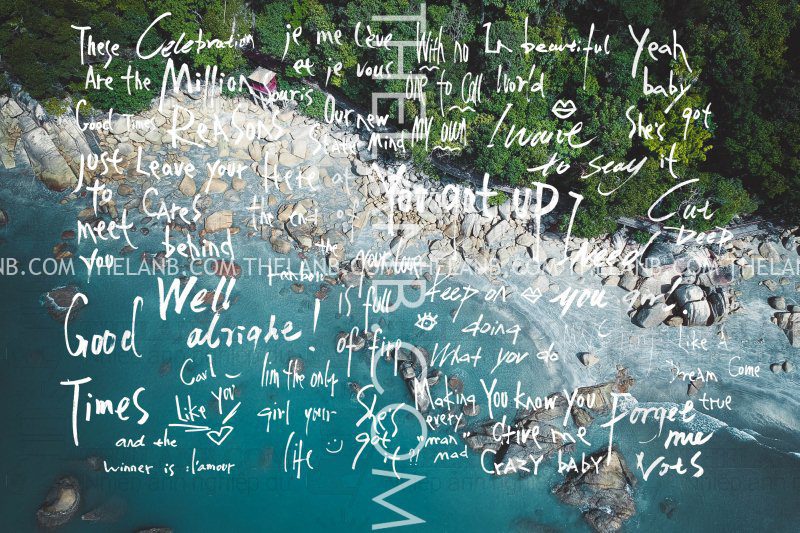 These Celebration
Are the Million
Good Times Reasons
Just Leave your
to Cares
meet behind
you
Well
Good alright!
Times
Carl
Like you
and the
winner is : l'amour
je me lève
et je vous
Our new
State Mind
Here of
the end of
the
your love
is full
of fire
I'm the only
girl your
life
She's
got it!!
With no
one to call
my own
In beautiful
World
I want
to say it
Yeah
baby
She's got
it
You got up
Cut
Deep
I Need
you girl
Keep on
doing
What you do
Like a
Dream Come
true
Making
every
"man"
mad
You know you
drive me
Crazy baby
Forget
me
Nots
THELANB.COM
NB.COM THELANB.COM THELANB.COM THELANB.COM THELAN